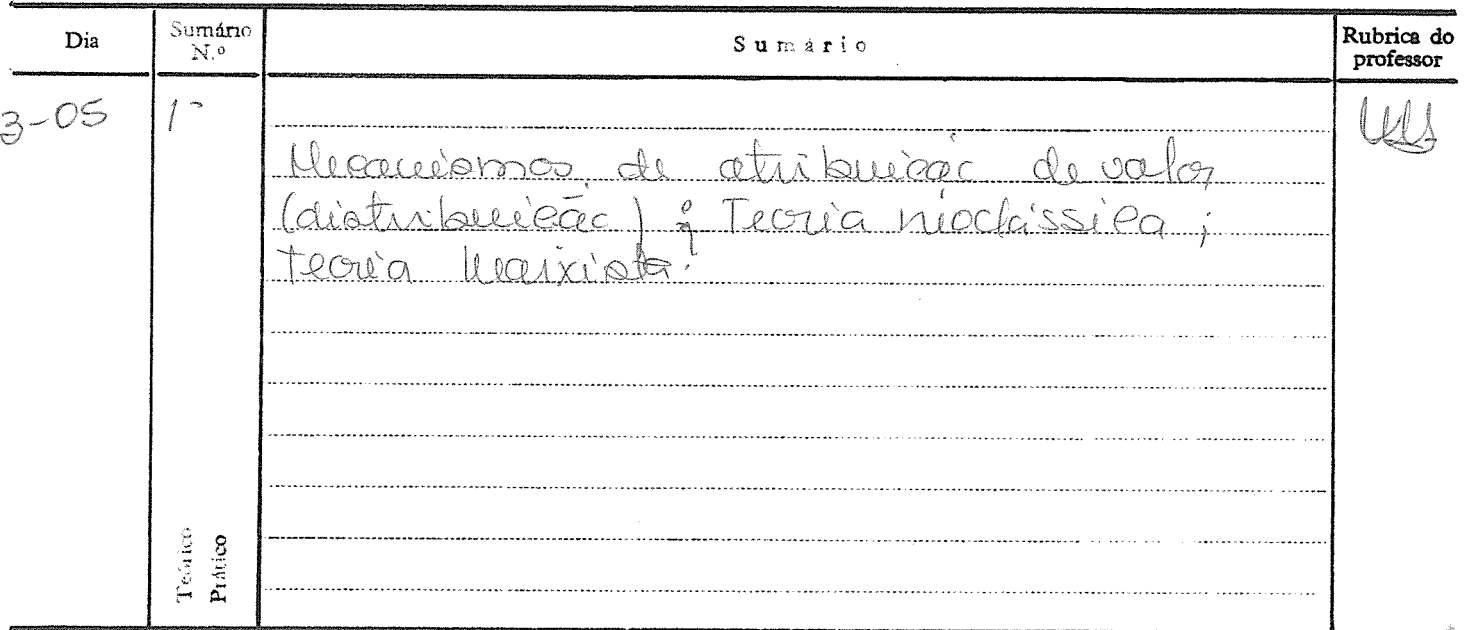 Dia
Sumário N.º
Sumário
Rubrica do professor
3-05
1º
Mecanismos de atribuição de valor
(distribuição): Teoria neoclássica;
teoria marxista.
Teórico
Prático